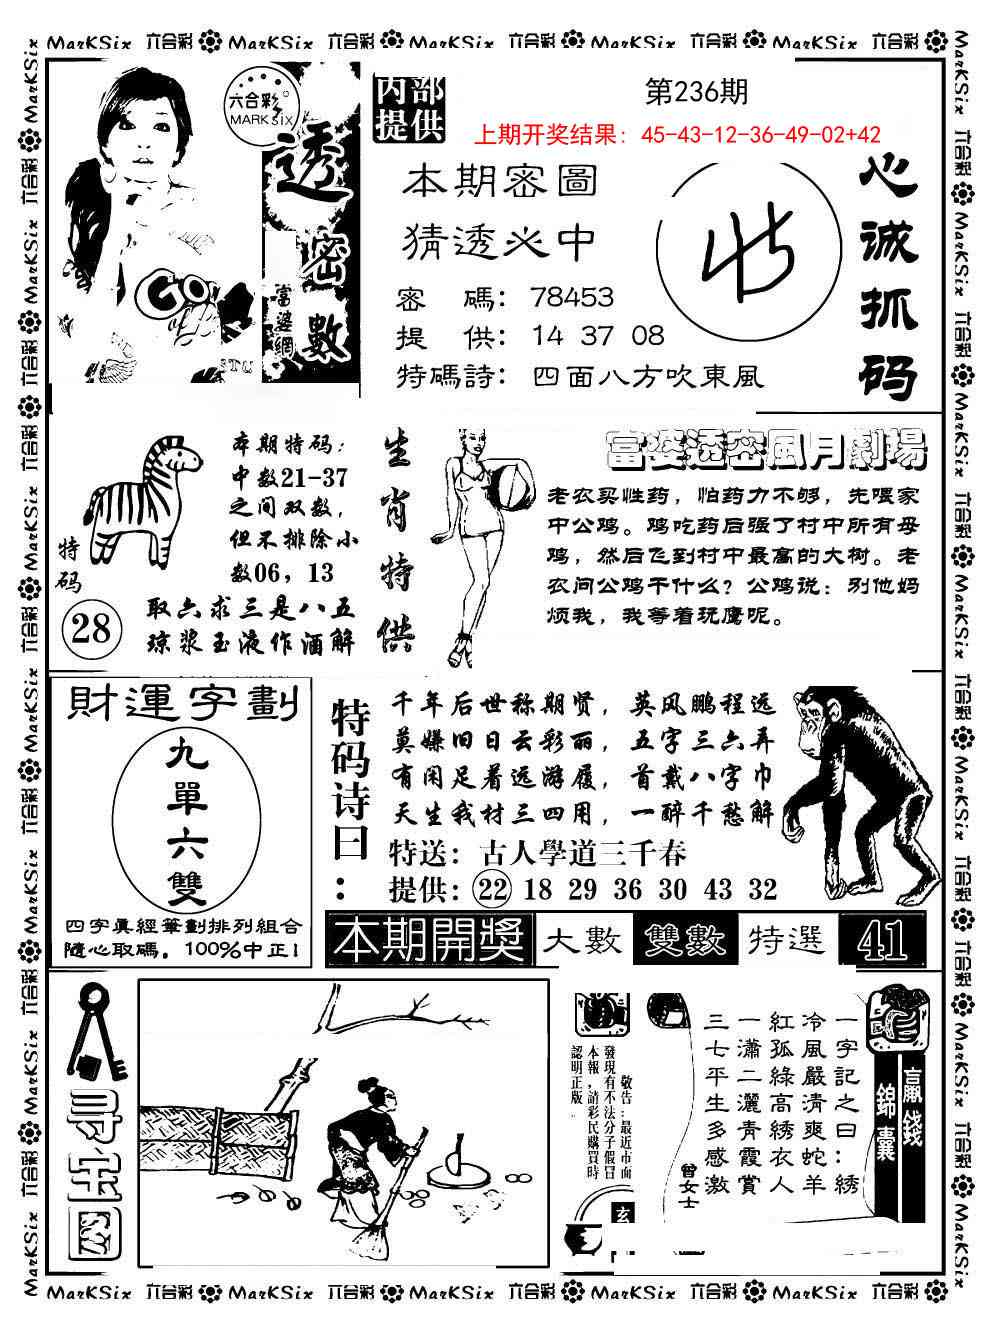 MarKSix 六合彩 MarKSix 六合彩 MarKSix 六合彩 MarKSix 六合彩 MarKSix 六合彩
六合彩
MARK SIX
透密數
富婆網
GO
内部
提供
第236期
上期开奖结果：45-43-12-36-49-02+42
本期密圖
猜透必中
密 碼：78453
提 供：14 37 08
特碼詩：四面八方吹東風
心诚抓码
本期特码：
中数21-37
之间双数，
但不排除小
数06，13
特码
28
取六求三是八五
琼浆玉液作酒解
生肖特供
富婆透密風月劇場
老农买性药，怕药力不够，先喂家
中公鸡。鸡吃药后强了村中所有母
鸡，然后飞到村中最高的大树。老
农问公鸡干什么？公鸡说：别他妈
烦我，我等着玩鹰呢。
財運字劃
九單六雙
四字眞經筆劃排列組合
隨心取碼，100%中正！
特码诗曰：
千年后世称期贤，英风鹏程远
莫嫌旧日云彩丽，五字三六弄
有闲足着远游履，首戴八字巾
天生我材三四用，一醉千愁解
特送：古人學道三千春
提供：22 18 29 36 30 43 32
本期開獎 大數 雙數 特選 41
寻宝图
敬告：最近市面
發現有不法分子假冒
本報，請彩民購買時
認明正版。
玄
贏錢
錦囊
一字記之曰：綉
冷風嚴清爽蛇羊
紅孤綠高綉衣人
一瀟二灑青霞賞
三七平生多感激
曾女士
MarKSix 六合彩 MarKSix 六合彩 MarKSix 六合彩 MarKSix 六合彩 MarKSix 六合彩